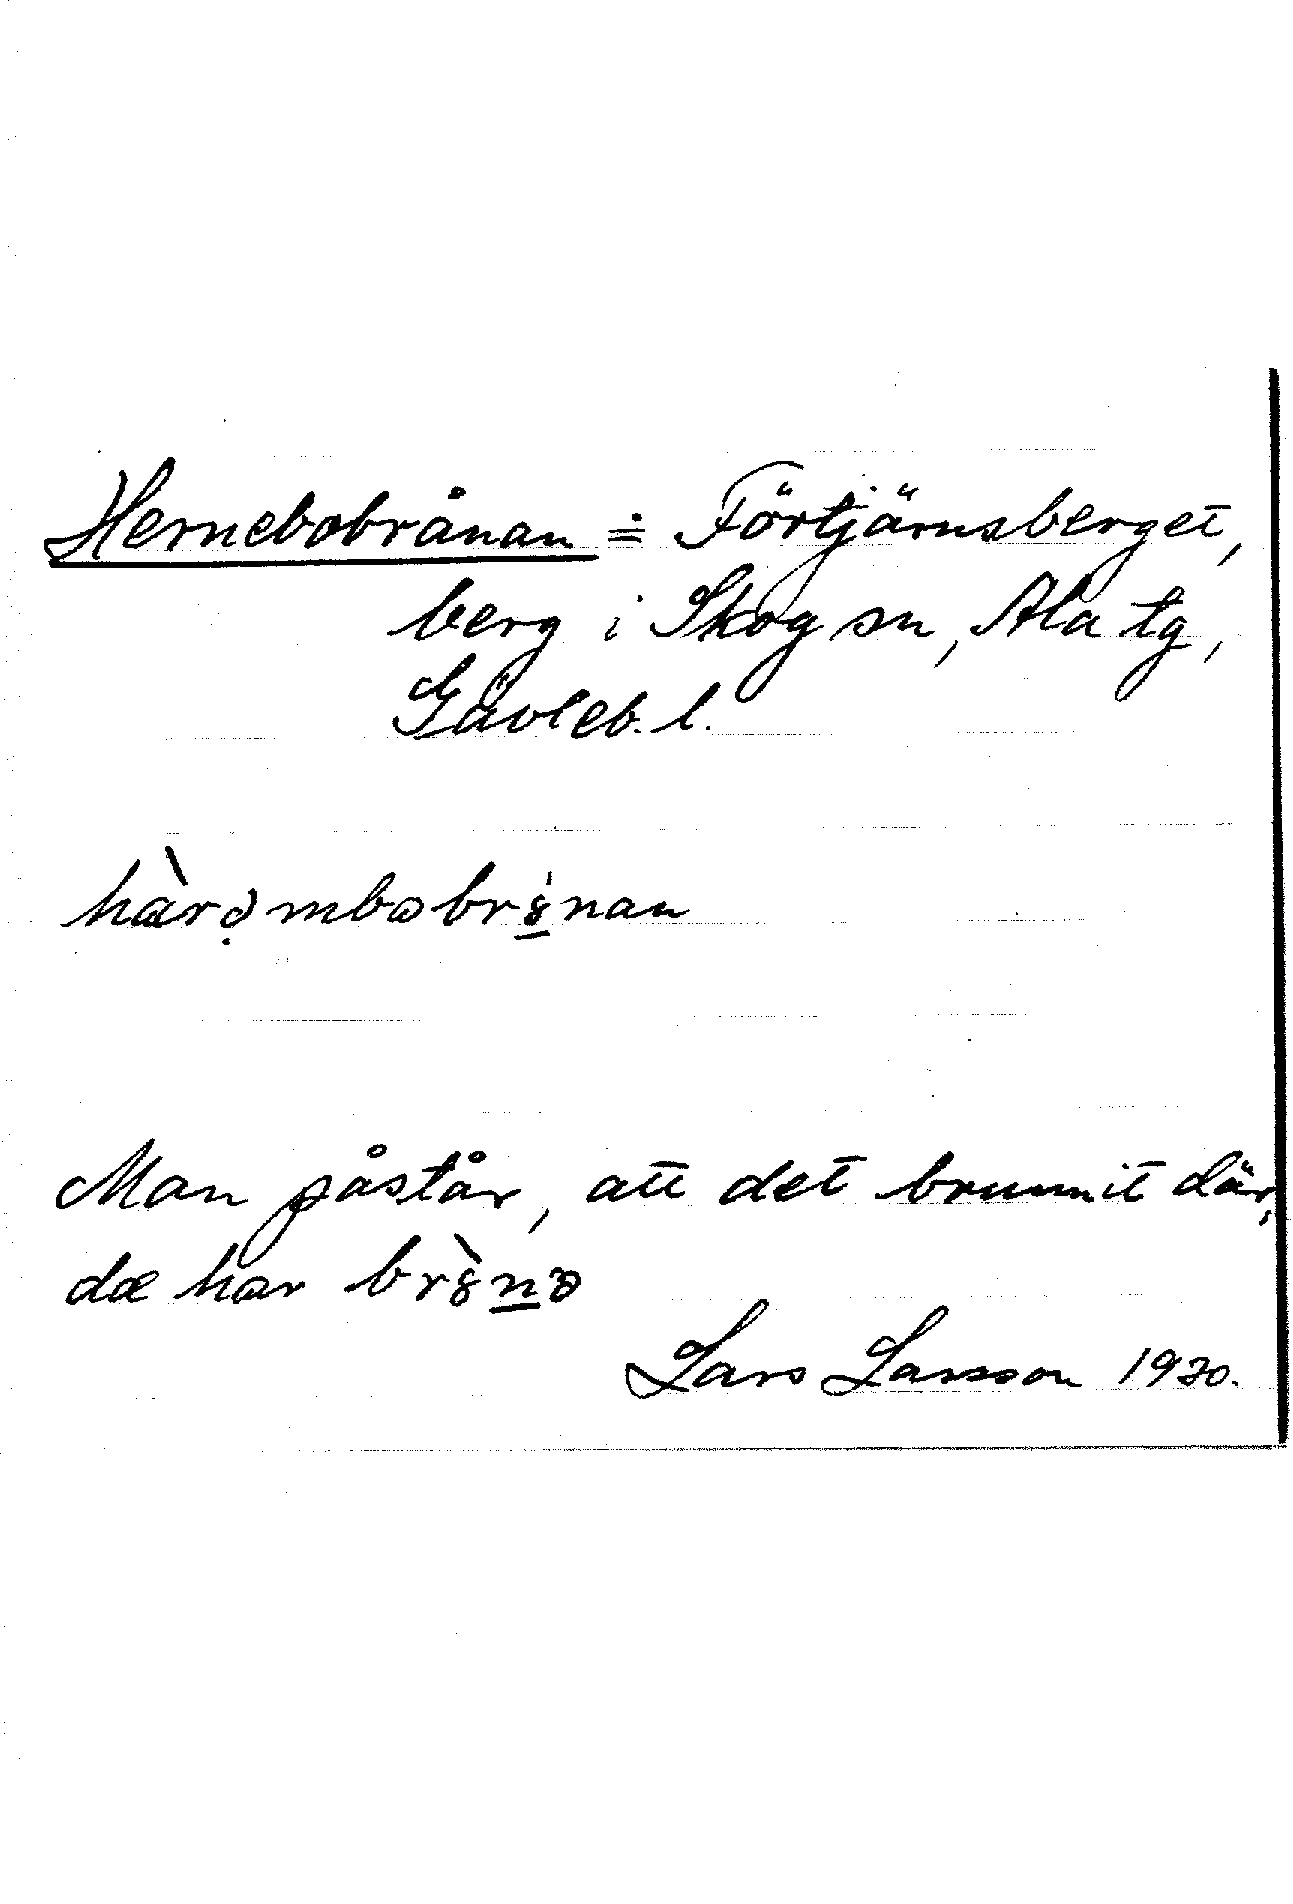 Hernebobrånan = Förtjärnsberget,
berg i Skog sn, Ala tg,
Gävleb. l.
Man påstår, att det brunnit där,
dæ har
Lars Larsson 1930.